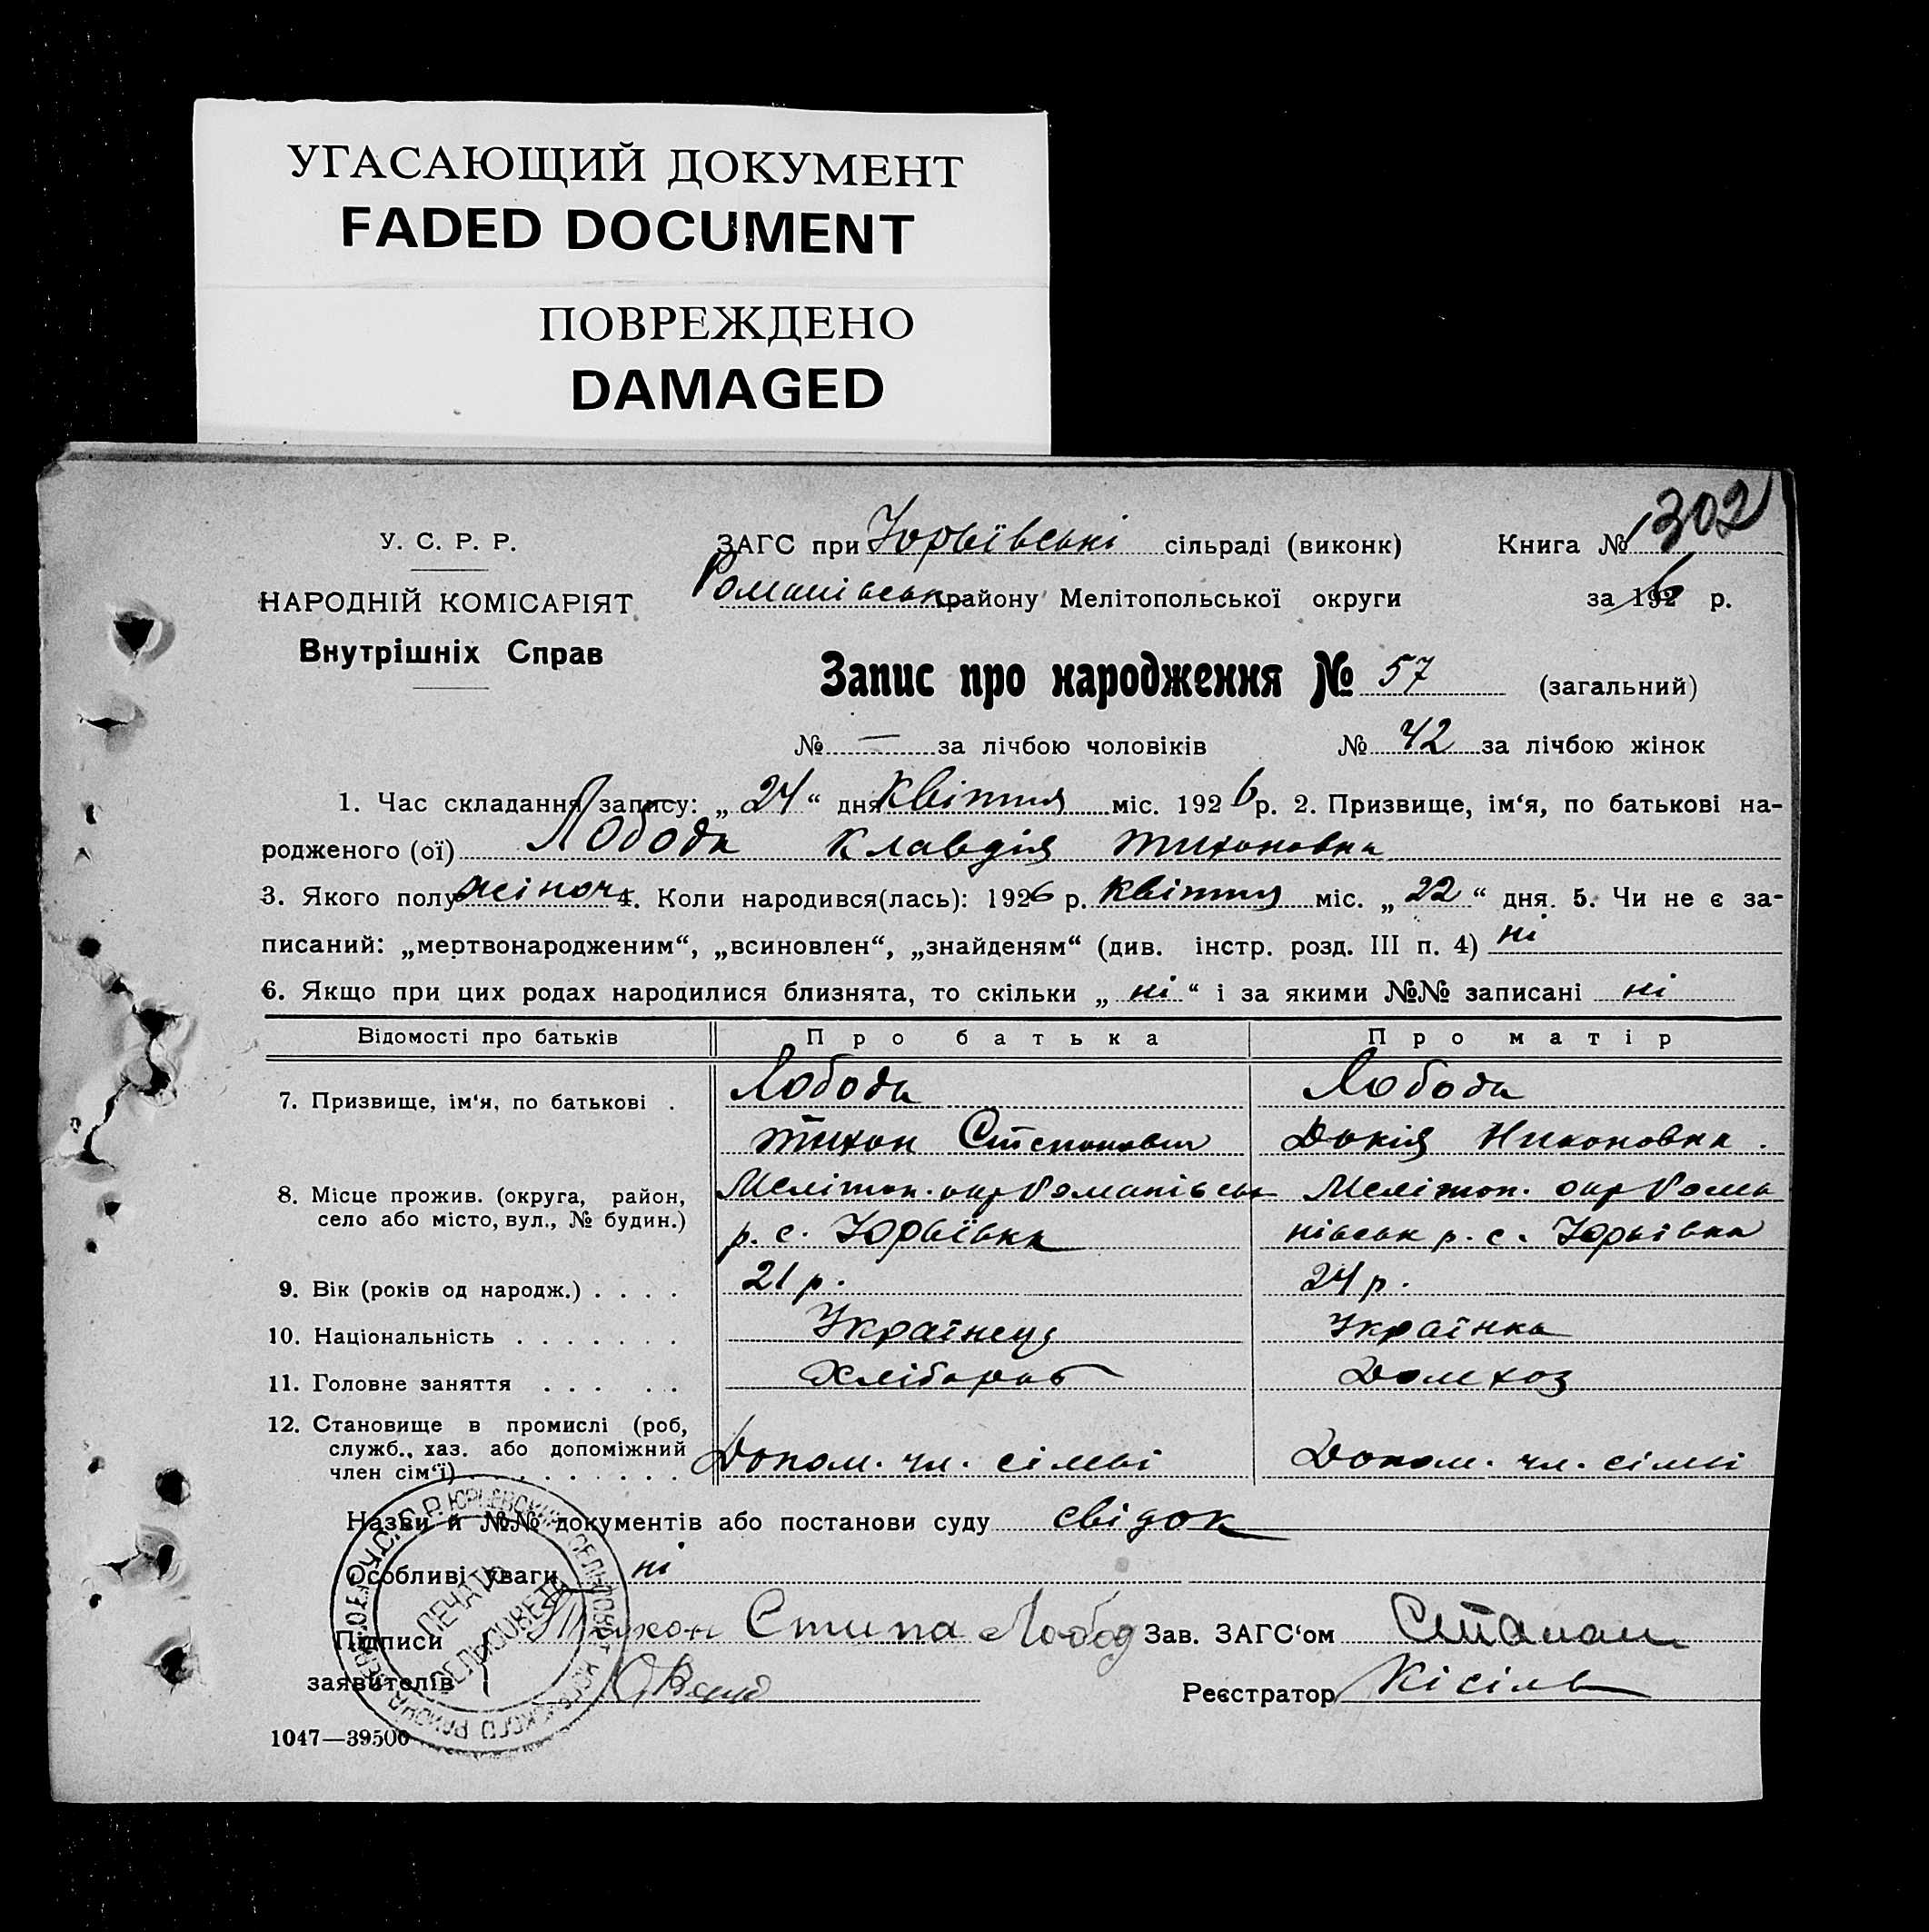 УГАСАЮЩИЙ ДОКУМЕНТ
FADED DOCUMENT
ПОВРЕЖДЕНО
DAMAGED
302
У. С. Р. Р. ЗАГС при Юрьївські сільраді (виконк) Книга №
НАРОДНІЙ КОМІСАРІЯТ Романівськ району Мелітопольської округи за 1926 р.
Внутрішніх Справ
Запис про народження № 57 (загальний)
№ — за лічбою чоловіків № 42 за лічбою жінок
1. Час складання запису: „ 24 “ дня Квітня міс. 1926 р. 2. Призвище, ім‘я, по батькові на-
родженого (ої) Лобода Клавдія Тихоновна
3. Якого полу жіноч 4. Коли народився(лась): 1926 р. Квітня міс. „ 22 “ дня. 5. Чи не є за-
писаний: „мертвонародженим“, „всиновлен“, „знайденям“ (див. інстр. розд. III п. 4) ні
6. Якщо при цих родах народилися близнята, то скільки „ ні “ і за якими №№ записані ні
Відомості про батьків Про батька Про матір
7. Призвище, ім‘я, по батькові . Лобода Лобода
Тихон Степанович Докія Никоновна .
8. Місце прожив. (округа, район, Мелітоп. окр Романівськ Мелітоп. окр Рома
село або місто, вул., № будин.) р. с. Юрьївка нівськ р. с. Юрьівка
9. Вік (років од народж.) . . . . 21 р. 24 р.
10. Національність . . . . . . . Українець Українка
11. Головне заняття . . . . . Хлібороб Домхоз
12. Становище в промислі (роб,
служб., хаз. або допоміжний
член сім‘ї) . . . . . . . . . Допом. чл. сімьі Допом. чл. сімьі
Назви й №№ документів або постанови суду свідок
Особливі уваги ні
Підписи Тихон Стипа Лобод Зав. ЗАГС‘ом
заявителів Реєстратор Кісіль
ПЕЧАТЬ
СЕЛЬСОВЕТА
1047—39500